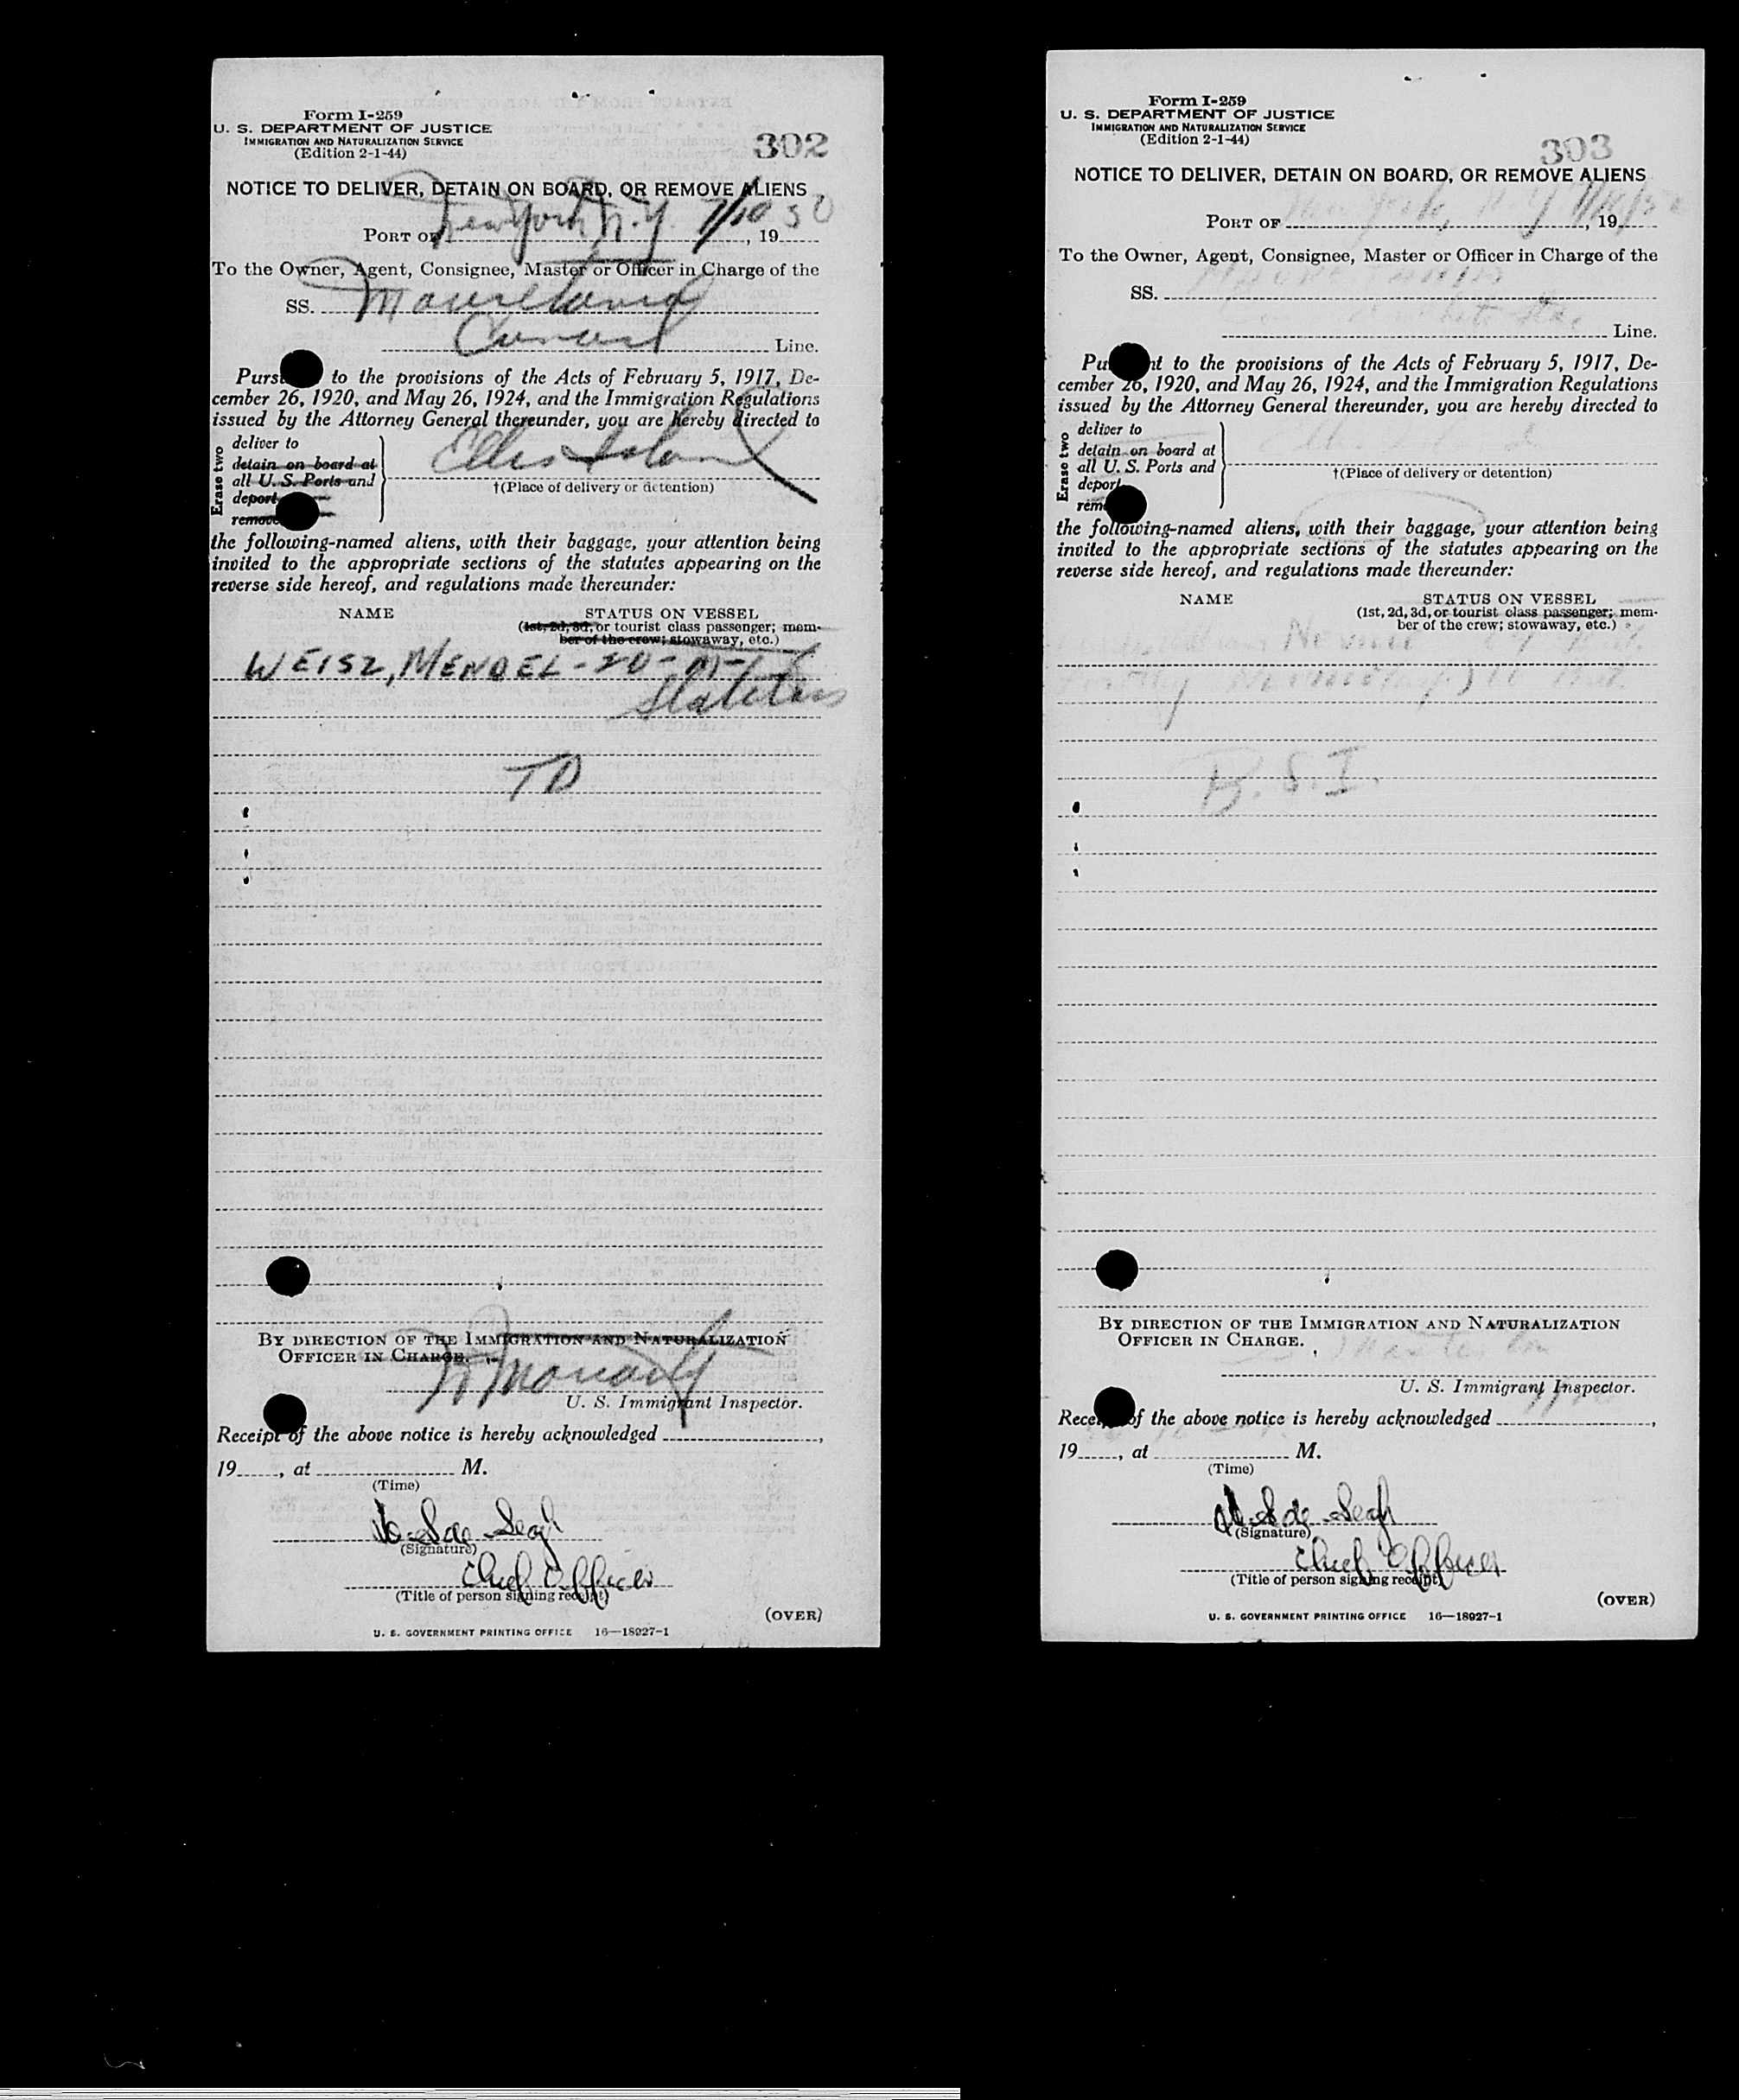 Form I-259
U. S. DEPARTMENT OF JUSTICE
IMMIGRATION AND NATURALIZATION SERVICE
(Edition 2-1-44)
302
NOTICE TO DELIVER, DETAIN ON BOARD, OR REMOVE ALIENS
PORT OF New York N.Y. 7/10, 19 50
To the Owner, Agent, Consignee, Master or Officer in Charge of the
SS. Mauretania
Cunard Line.
Purs to the provisions of the Acts of February 5, 1917, De-
cember 26, 1920, and May 26, 1924, and the Immigration Regulations
issued by the Attorney General thereunder, you are hereby directed to
Erase two
deliver to
detain on board at
all U. S. Ports and
deport
remove
Ellis Island
†(Place of delivery or detention)
the following-named aliens, with their baggage, your attention being
invited to the appropriate sections of the statutes appearing on the
reverse side hereof, and regulations made thereunder:
NAME STATUS ON VESSEL
(1st, 2d, 3d, or tourist class passenger; mem-
ber of the crew; stowaway, etc.)
WEISZ, MENDEL - 20 - M -
Stateless
TD
BY DIRECTION OF THE IMMIGRATION AND NATURALIZATION
OFFICER IN CHARGE.
U. S. Immigrant Inspector.
Receipt of the above notice is hereby acknowledged ,
19 , at M.
(Time)
(Signature)
Chief Officer
(Title of person signing receipt)
(OVER)
U. S. GOVERNMENT PRINTING OFFICE 16—18927-1
Form I-259
U. S. DEPARTMENT OF JUSTICE
IMMIGRATION AND NATURALIZATION SERVICE
(Edition 2-1-44)
303
NOTICE TO DELIVER, DETAIN ON BOARD, OR REMOVE ALIENS
PORT OF New York, N.Y. 7/10/50, 19
To the Owner, Agent, Consignee, Master or Officer in Charge of the
SS.
Line.
Pu nt to the provisions of the Acts of February 5, 1917, De-
cember 26, 1920, and May 26, 1924, and the Immigration Regulations
issued by the Attorney General thereunder, you are hereby directed to
Erase two
deliver to
detain on board at
all U. S. Ports and
deport
rem
†(Place of delivery or detention)
the following-named aliens, with their baggage, your attention being
invited to the appropriate sections of the statutes appearing on the
reverse side hereof, and regulations made thereunder:
NAME STATUS ON VESSEL
(1st, 2d, 3d, or tourist class passenger; mem-
ber of the crew; stowaway, etc.)
B.S.I.
BY DIRECTION OF THE IMMIGRATION AND NATURALIZATION
OFFICER IN CHARGE.
U. S. Immigrant Inspector.
Rece of the above notice is hereby acknowledged ,
19 , at M.
(Time)
(Signature)
Chief Officer
(Title of person signing receipt)
(OVER)
U. S. GOVERNMENT PRINTING OFFICE 16—18927-1